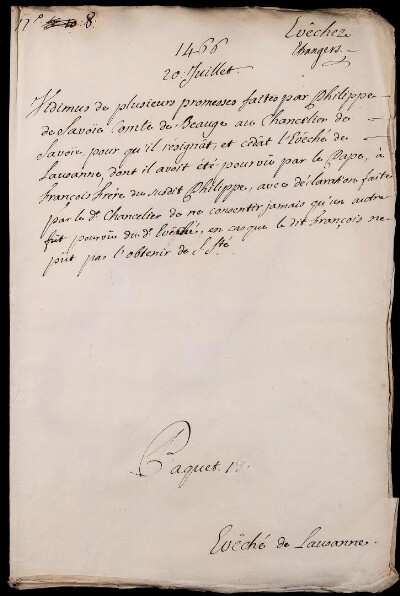 N.° 8.
Evêchez
Etrangers.
1466
20. Juillet.
Vidimus de plusieurs promesses faites par Philippe
de Savoïe Comte de Beaugé au Chancelier de
Savoïe, pour qu'il résignât, et cédât l'Evêché de
Lausanne, dont il avoit été pourvû par le Pape, à
François frère du susdit Philippe, avec déclaration faite
par le d.t Chancelier de ne consentir jamais qu'un autre
fût pourvû du d.t Evêché, en cas que le dit François ne
pût pas l'obtenir de S. Sté.
Paquet. 1
Evêché de Lausanne.